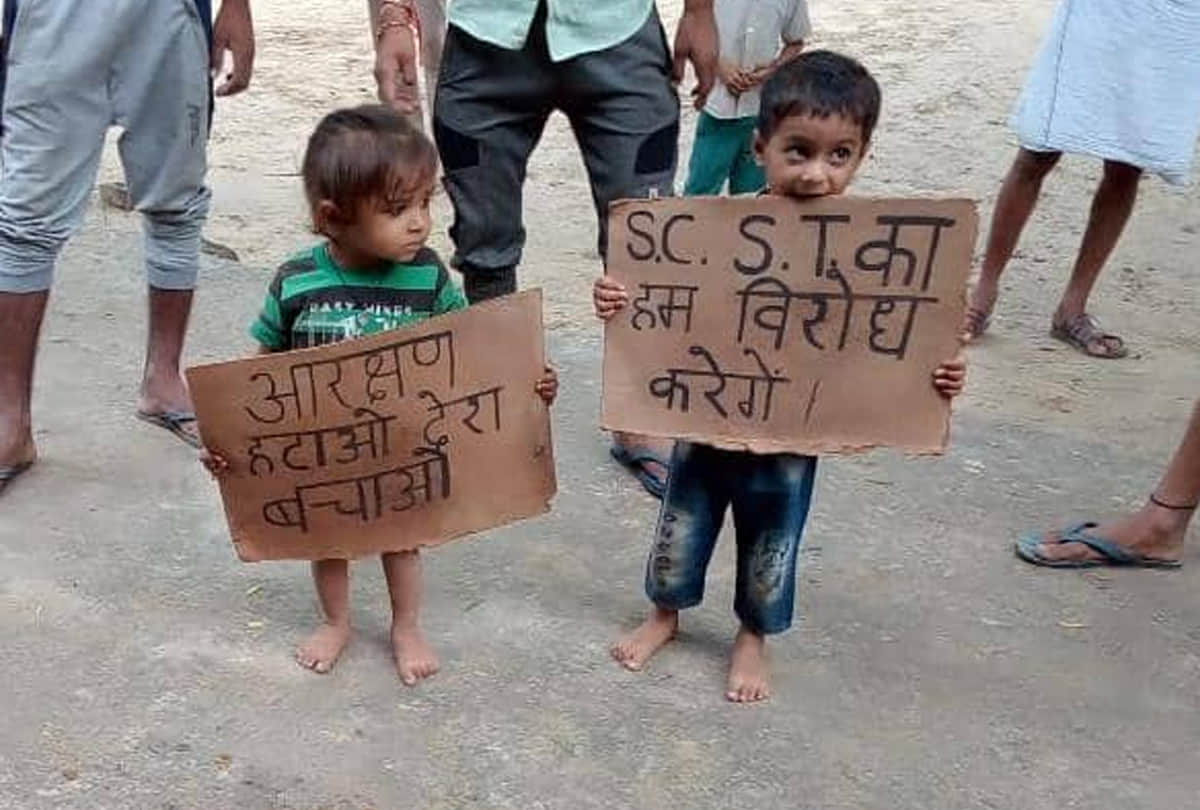 आरक्षण
हटाओ देरा
बचाओ
S.C. S.T. का
हम विरोध
करेगें ।